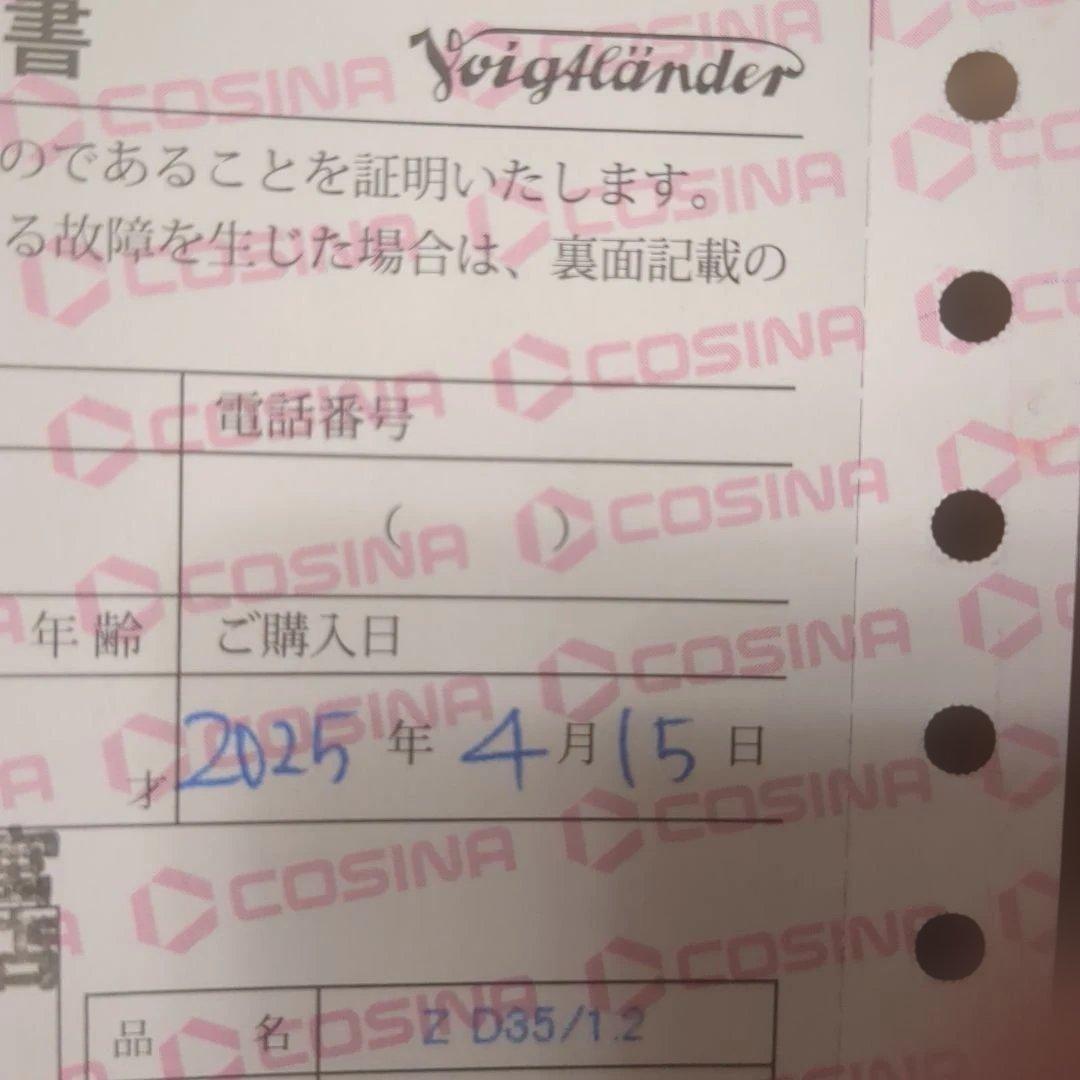 書 Voigtländer
のであることを証明いたします。
る故障を生じた場合は、裏面記載の
電話番号
( )
年齢 ご購入日
才 2025年4月15日
品名 Z D35/1.2
COSINA
COSINA
COSINA
COSINA
COSINA
COSINA
COSINA
COSINA
COSINA
COSINA
COSINA
COSINA
COSINA
COSINA